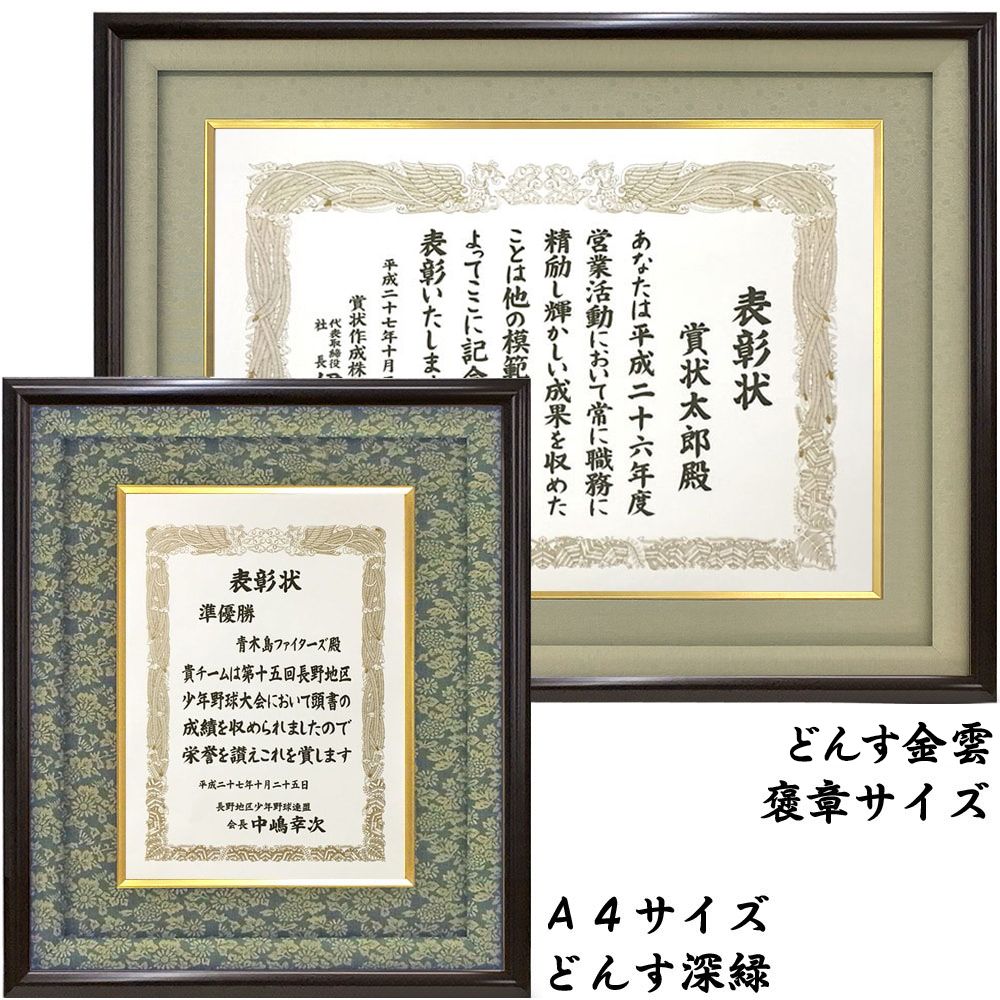 表彰状
賞状太郎殿
あなたは平成二十六年度
営業活動において常に職務に
精励し輝かしい成果を収めた
ことは他の模範
よってここに記念
表彰いたしま
平成二十七年十月
賞状作成株
代表取締役
社長
表彰状
準優勝
青木島ファイターズ殿
貴チームは第十五回長野地区
少年野球大会において頭書の
成績を収められましたので
栄誉を讃えこれを賞します
平成二十七年十月二十五日
長野地区少年野球連盟
会長 中嶋幸次
どんす金雲
褒章サイズ
A4サイズ
どんす深緑